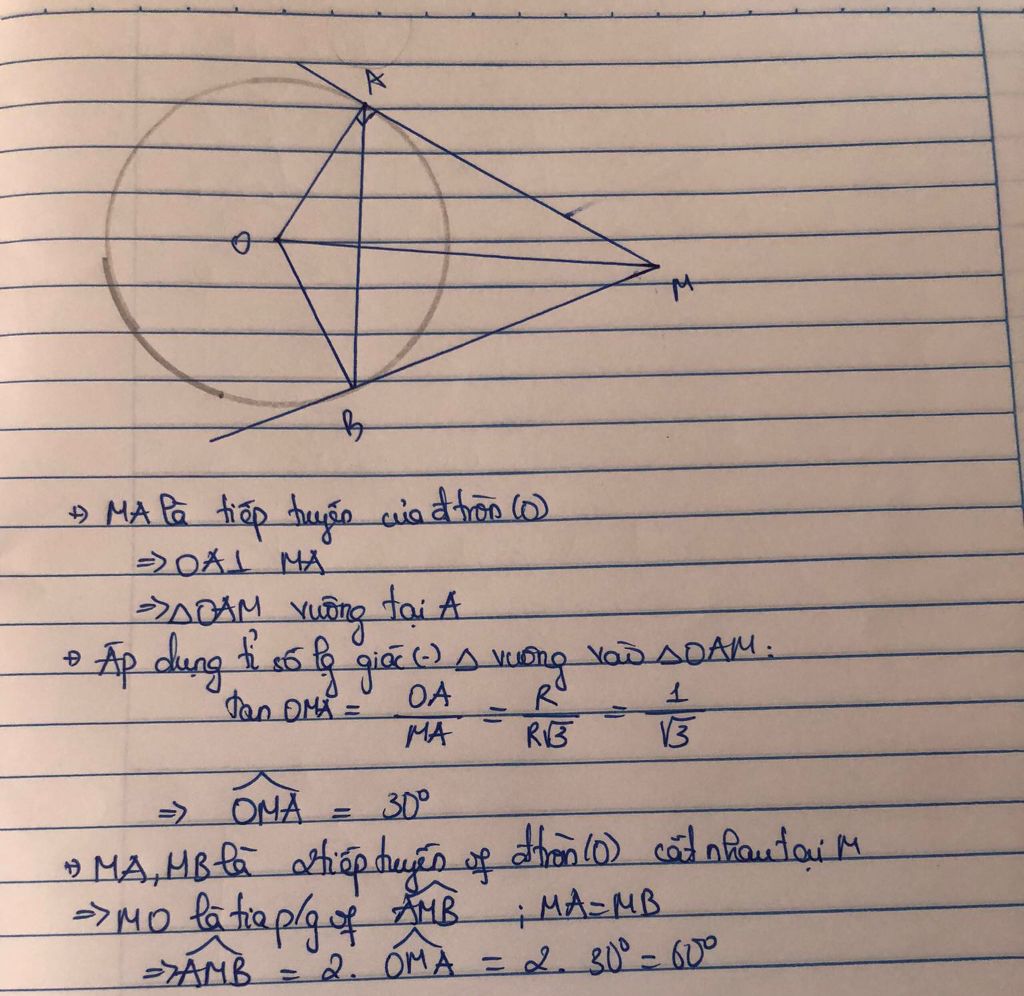 A
O
M
B
+) MA là tiếp tuyến của đ tròn (O)
=> OA⊥ MA
=> △OAM vuông tại A
+) Áp dụng tỉ số lg giác (-) △ vuông vào △OAM:
tan OMA = OA/MA = R/R√3 = 1/√3
=> \widehat{OMA} = 30°
+) MA, MB là 2 tiếp tuyến of đ tròn (O) cắt nhau tại M
=> MO là tia p/g of \widehat{AMB} ; MA=MB
=> \widehat{AMB} = 2. \widehat{OMA} = 2. 30° = 60°